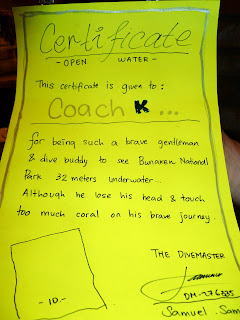 Certificate
- OPEN WATER -
This certificate is given to :
Coach K ...
for being such a brave gentleman
& dive buddy to see Bunaken National
Park 32 meters underwater...
Although he lose his head & touch
too much coral on his brave journey.
THE DIVEMASTER
DM-276835
- 10 -
Samuel. Sam